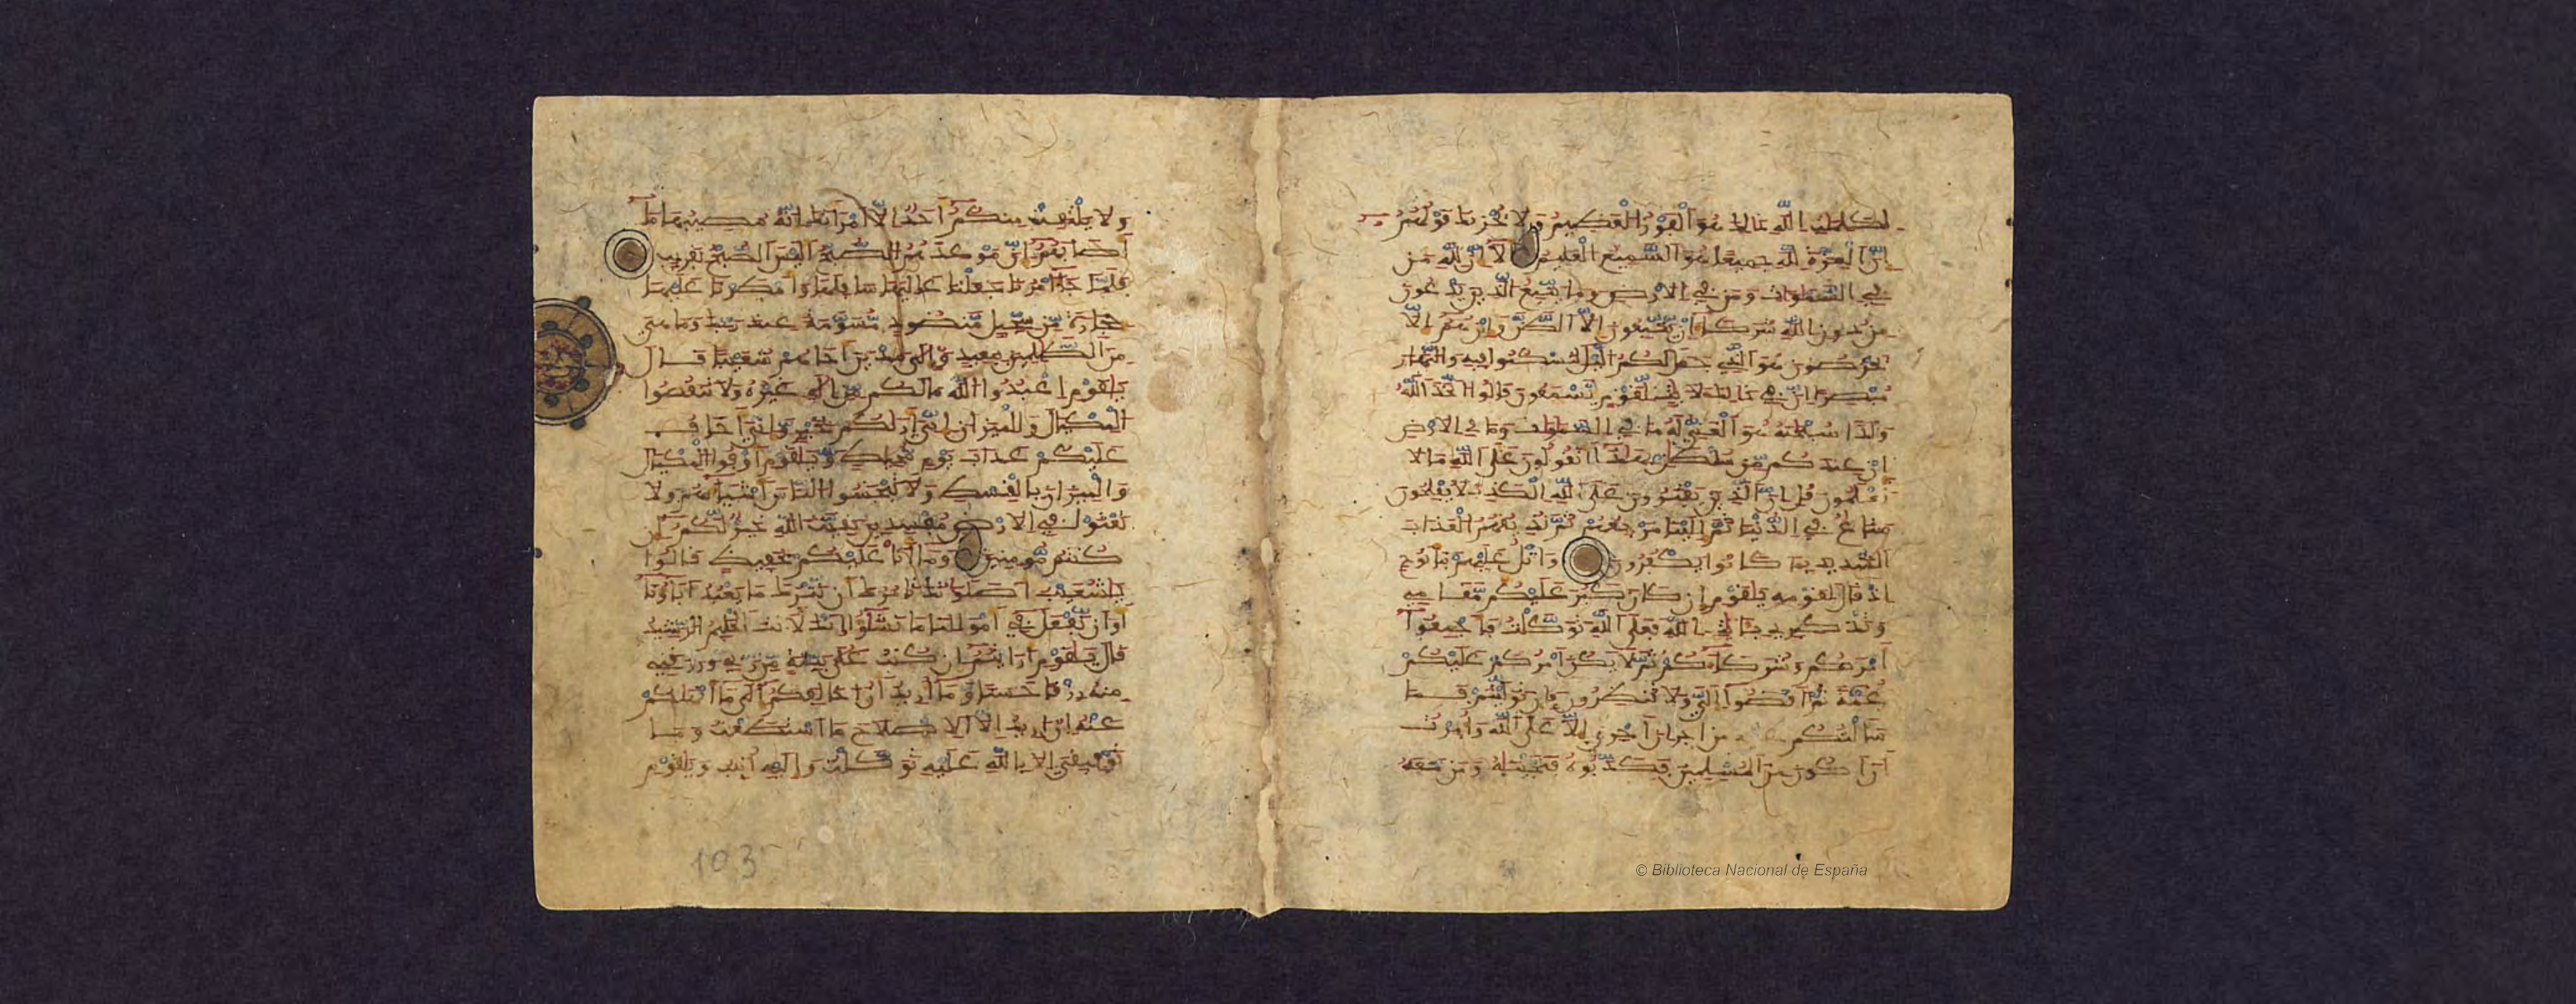 لكلمت الله ذلك هو الفوز العظيم ولا يحزنك قولهم
ان العزة لله جميعا هو السميع العليم الا ان لله من
في السموات ومن في الارض وما يتبع الذين يدعون
من دون الله شركاء ان يتبعون الا الظن وان هم الا
يخرصون هو الذي جعل لكم اليل لتسكنوا فيه والنهار
مبصرا ان في ذلك لايت لقوم يسمعون قالوا اتخذ الله
ولدا سبحنه هو الغني له ما في السموات وما في الارض
ان عندكم من سلطن بهذا اتقولون على الله ما لا
تعلمون قل ان الذين يفترون على الله الكذب لا يفلحون
متاع في الدنيا ثم الينا مرجعهم ثم نذيقهم العذاب
الشديد بما كانوا يكفرون واتل عليهم نبا نوح
اذ قال لقومه يقوم ان كان كبر عليكم مقامي
وتذكيري بايت الله فعلى الله توكلت فاجمعوا
امركم وشركاءكم ثم لا يكن امركم عليكم
غمة ثم اقضوا الي ولا تنظرون فان توليتم فما
سالتكم من اجر ان اجري الا على الله وامرت
ان اكون من المسلمين فكذبوه فنجينه ومن معه
ولا يلتفت منكم احد الا امراتك انه مصيبها ما
اصابهم ان موعدهم الصبح اليس الصبح بقريب
فلما جاء امرنا جعلنا عاليها سافلها وامطرنا عليها
حجارة من سجيل منضود مسومة عند ربك وما هي
من الظلمين ببعيد والى مدين اخاهم شعيبا قال
يقوم اعبدوا الله ما لكم من اله غيره ولا تنقصوا
المكيال والميزان اني اريكم بخير واني اخاف
عليكم عذاب يوم محيط ويقوم اوفوا المكيال
والميزان بالقسط ولا تبخسوا الناس اشياءهم ولا
تعثوا في الارض مفسدين بقيت الله خير لكم ان
كنتم مومنين وما انا عليكم بحفيظ قالوا
يشعيب اصلوتك تامرك ان نترك ما يعبد اباونا
او ان نفعل في امولنا ما نشؤا انك لانت الحليم الرشيد
قال يقوم ارايتم ان كنت على بينة من ربي ورزقني
منه رزقا حسنا وما اريد ان اخالفكم الى ما انهيكم
عنه ان اريد الا الاصلاح ما استطعت وما
توفيقي الا بالله عليه توكلت واليه انيب ويقوم
103
© Biblioteca Nacional de España